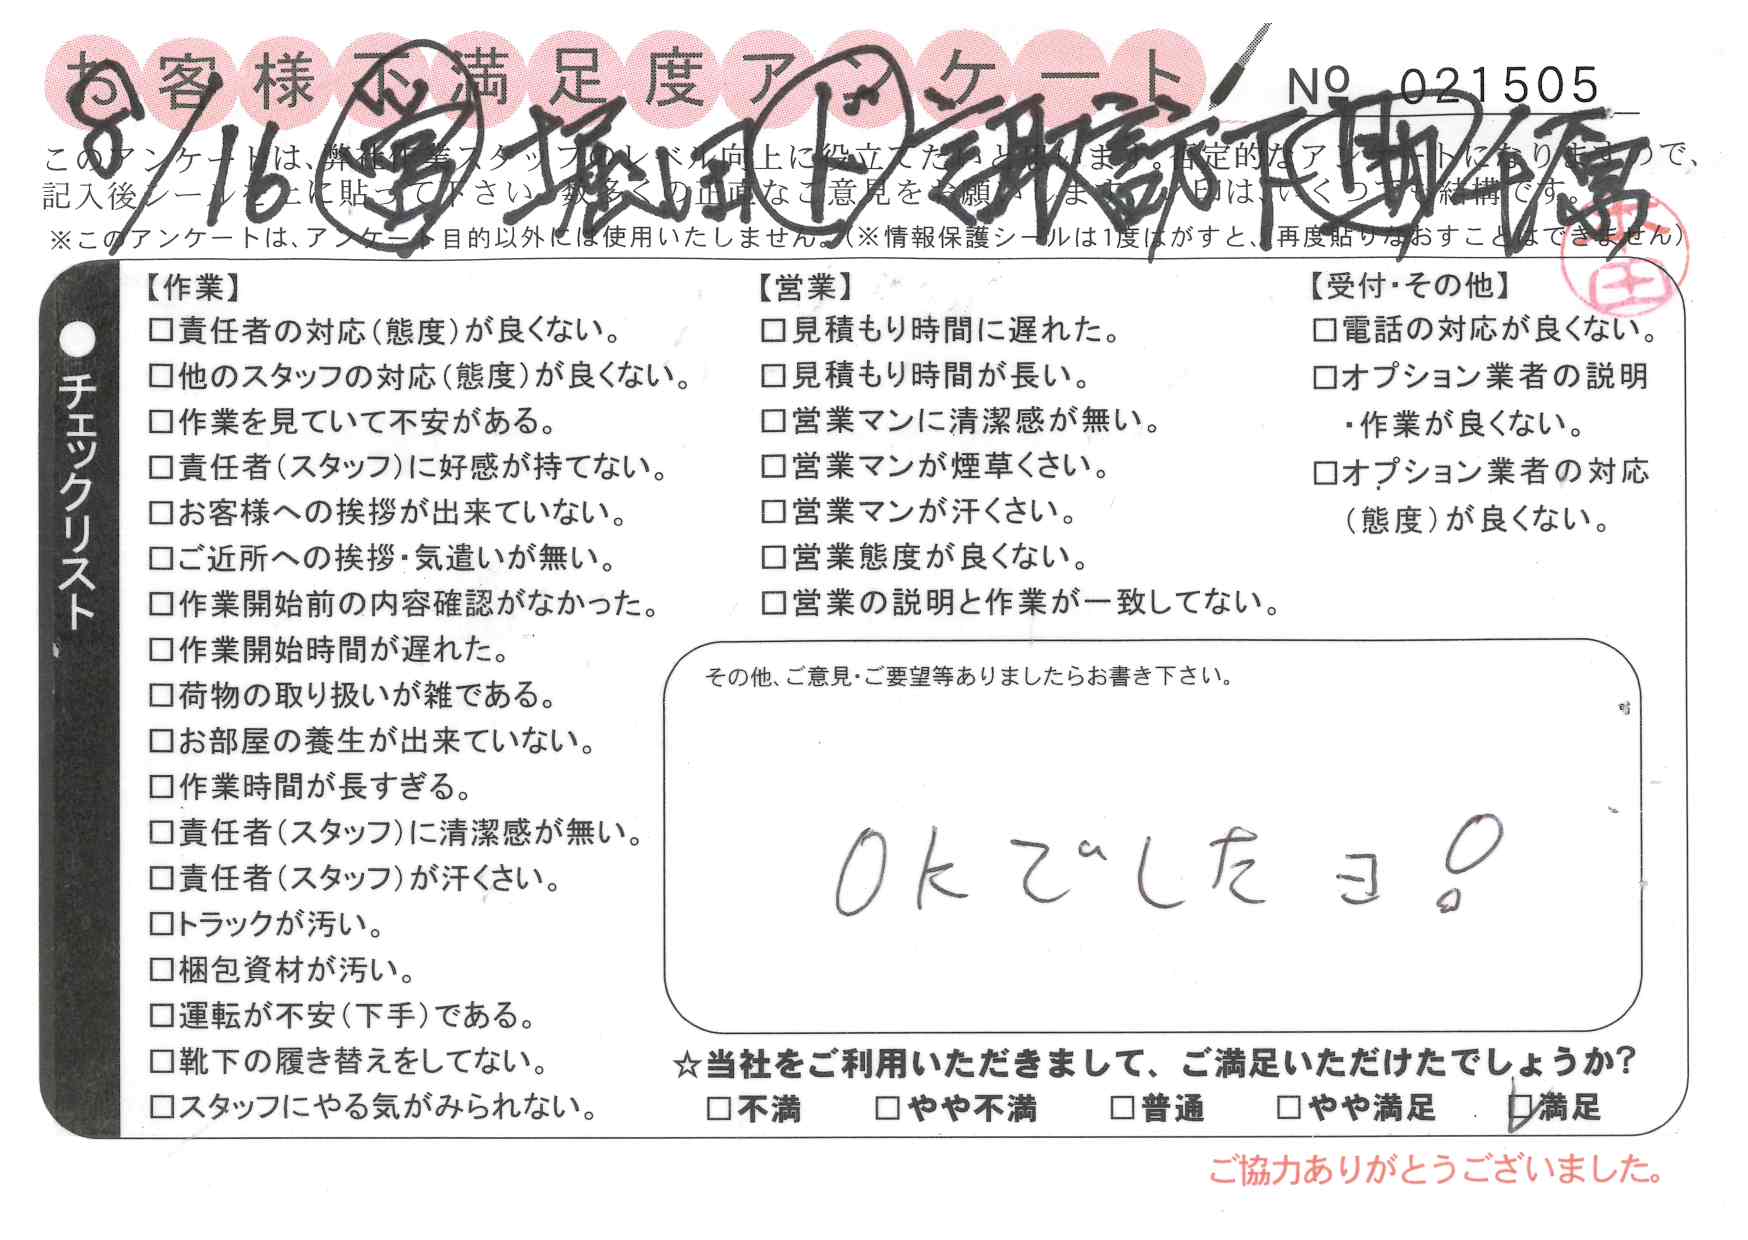 お客様不満足度アンケート
NO 021505
8/16 営 堀田 ト 諏訪下 助
このアンケートは、弊社作業スタッフのレベル向上に役立てたいと思います。否定的なアンケートになりますので、
記入後シールを上に貼って下さい。数多くの正直なご意見をお願いします。レ印は、いくつでも結構です。
※このアンケートは、アンケート目的以外には使用いたしません。(※情報保護シールは1度はがすと、再度貼りなおすことはできません)
●チェックリスト
【作業】
□責任者の対応(態度)が良くない。
□他のスタッフの対応(態度)が良くない。
□作業を見ていて不安がある。
□責任者(スタッフ)に好感が持てない。
□お客様への挨拶が出来ていない。
□ご近所への挨拶・気遣いが無い。
□作業開始前の内容確認がなかった。
□作業開始時間が遅れた。
□荷物の取り扱いが雑である。
□お部屋の養生が出来ていない。
□作業時間が長すぎる。
□責任者(スタッフ)に清潔感が無い。
□責任者(スタッフ)が汗くさい。
□トラックが汚い。
□梱包資材が汚い。
□運転が不安(下手)である。
□靴下の履き替えをしてない。
□スタッフにやる気がみられない。
【営業】
□見積もり時間に遅れた。
□見積もり時間が長い。
□営業マンに清潔感が無い。
□営業マンが煙草くさい。
□営業マンが汗くさい。
□営業態度が良くない。
□営業の説明と作業が一致してない。
【受付・その他】
□電話の対応が良くない。
□オプション業者の説明
・作業が良くない。
□オプション業者の対応
(態度)が良くない。
その他、ご意見・ご要望等ありましたらお書き下さい。
OKでしたヨ!
☆当社をご利用いただきまして、ご満足いただけたでしょうか?
□不満 □やや不満 □普通 □やや満足 ☑満足
ご協力ありがとうございました。